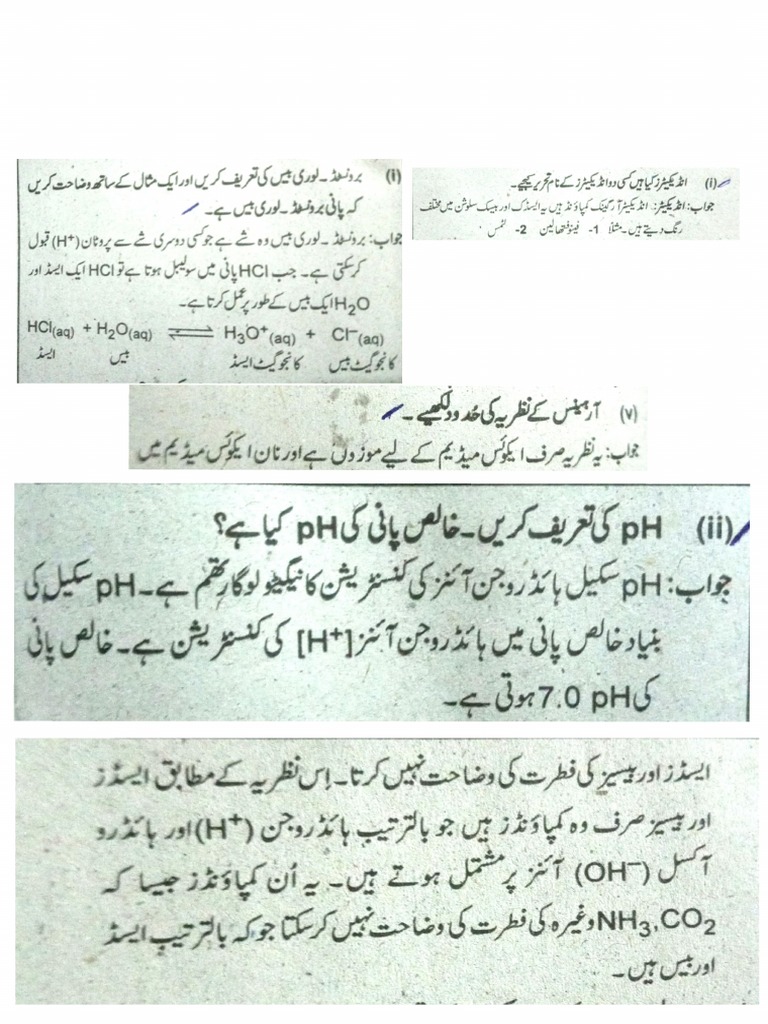 (i) برونسٹڈ۔لوری بیس کی تعریف کریں اور ایک مثال کے ساتھ وضاحت کریں
کہ پانی برونسٹڈ۔لوری بیس ہے۔
جواب: برونسٹڈ۔لوری بیس وہ شے ہے جو کسی دوسری شے سے پروٹان (H+) قبول
کر سکتی ہے۔ جب HCl پانی میں سولیبل ہوتا ہے تو HCl ایک ایسڈ اور
H2O ایک بیس کے طور پر عمل کرتا ہے۔
HCl(aq) + H2O(aq) ⇌ H3O+(aq) + Cl−(aq)
ایسڈ بیس کانجوگیٹ ایسڈ کانجوگیٹ بیس
(i) انڈیکیٹرز کیا ہیں کسی دو انڈیکیٹرز کے نام تحریر کیجیے۔
جواب: انڈیکیٹرز: انڈیکیٹرز آرگینک کمپاؤنڈ ہیں یہ ایسڈک اور بیسک سلوشن میں مختلف
رنگ دیتے ہیں۔ مثلاً 1- فینولفتھالین 2- لٹمس
(v) آرہینیس کے نظریہ کی حدود لکھیے۔
جواب: یہ نظریہ صرف ایکوئس میڈیم کے لیے موزوں ہے اور نان ایکوئس میڈیم میں
(ii) pH کی تعریف کریں۔ خالص پانی کی pH کیا ہے؟
جواب: pH سکیل ہائڈروجن آئنز کی کنسنٹریشن کا نیگیٹو لوگارتھم ہے۔ pH سکیل کی
بنیاد خالص پانی میں ہائڈروجن آئنز [H+] کی کنسنٹریشن ہے۔ خالص پانی
کی pH 7.0 ہوتی ہے۔
ایسڈز اور بیسیز کی فطرت کی وضاحت نہیں کرتا۔ اِس نظریہ کے مطابق ایسڈز
اور بیسیز صرف وہ کمپاؤنڈز ہیں جو بالترتیب ہائڈروجن (H+) اور ہائڈرو
آکسل (OH−) آئنز پر مشتمل ہوتے ہیں۔ یہ اُن کمپاؤنڈز جیسا کہ
NH3, CO2 وغیرہ کی فطرت کی وضاحت نہیں کر سکتا جو کہ بالترتیب ایسڈ
اور بیس ہیں۔